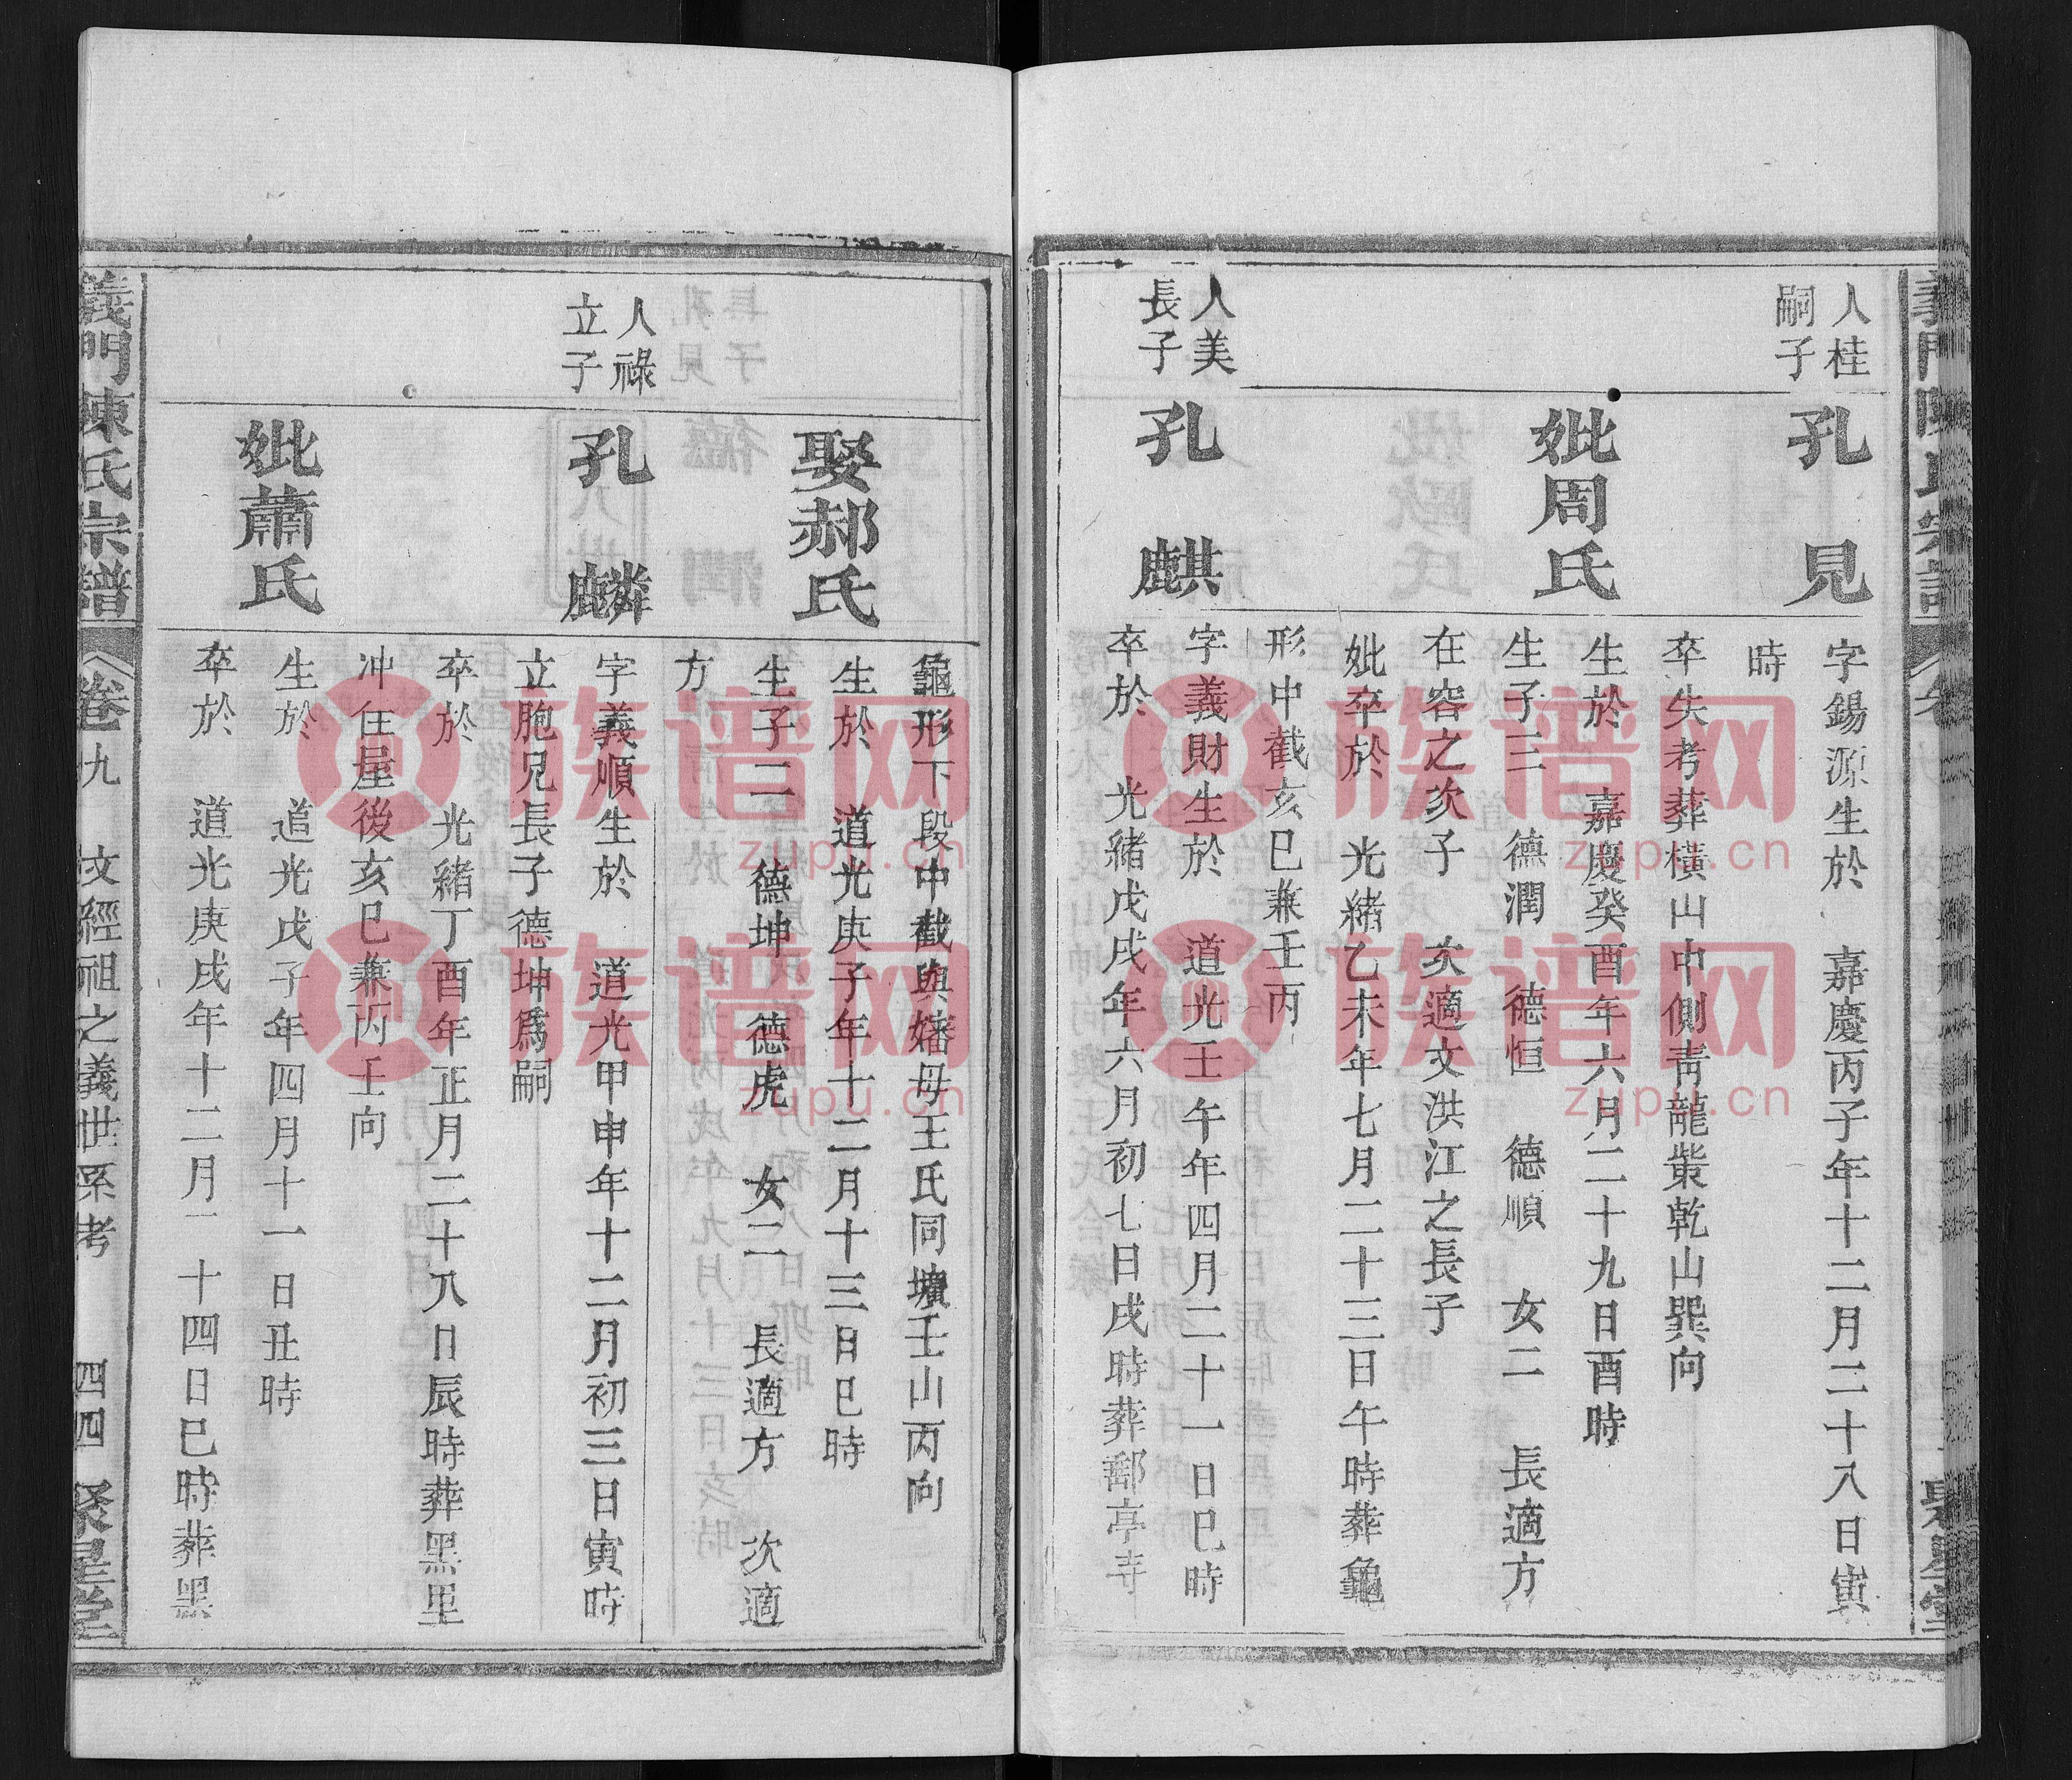 人桂
嗣子
孔見
字錫源生於 嘉慶丙子年十二月二十八日寅
時
卒失考葬橫山中側靑龍嘴乾山巽向
妣周氏
生於 嘉慶癸酉年六月二十九日酉時
生子三 德潤 德恒 德順 女二 長適方
在容之次子 次適文洪江之長子
妣卒於 光緒乙未年七月二十三日午時葬龜
形中截亥巳兼壬丙
人美
長子
孔麒
字義財生於 道光壬午年四月二十一日巳時
卒於 光緒戊戌年六月初七日戌時葬鄱亭寺
龜形下段中截與嬸母王氏同壙壬山丙向
娶郝氏
生於 道光庚子年十二月十三日巳時
生子二 德坤 德虎 女二 長適方 次適
方
人祿
立子
孔麟
字義順生於 道光甲申年十二月初三日寅時
立胞兄長子德坤爲嗣
卒於 光緒丁酉年正月二十八日辰時葬黑里
冲住屋後亥巳兼丙壬向
妣蕭氏
生於 道光戊子年四月十一日丑時
卒於 道光庚戌年十二月二十四日巳時葬黑
義門陳氏宗譜 卷九 文經祖之義世系考 四四 聚星堂
族谱网
zupu.cn
族谱网
zupu.cn
族谱网
zupu.cn
族谱网
zupu.cn